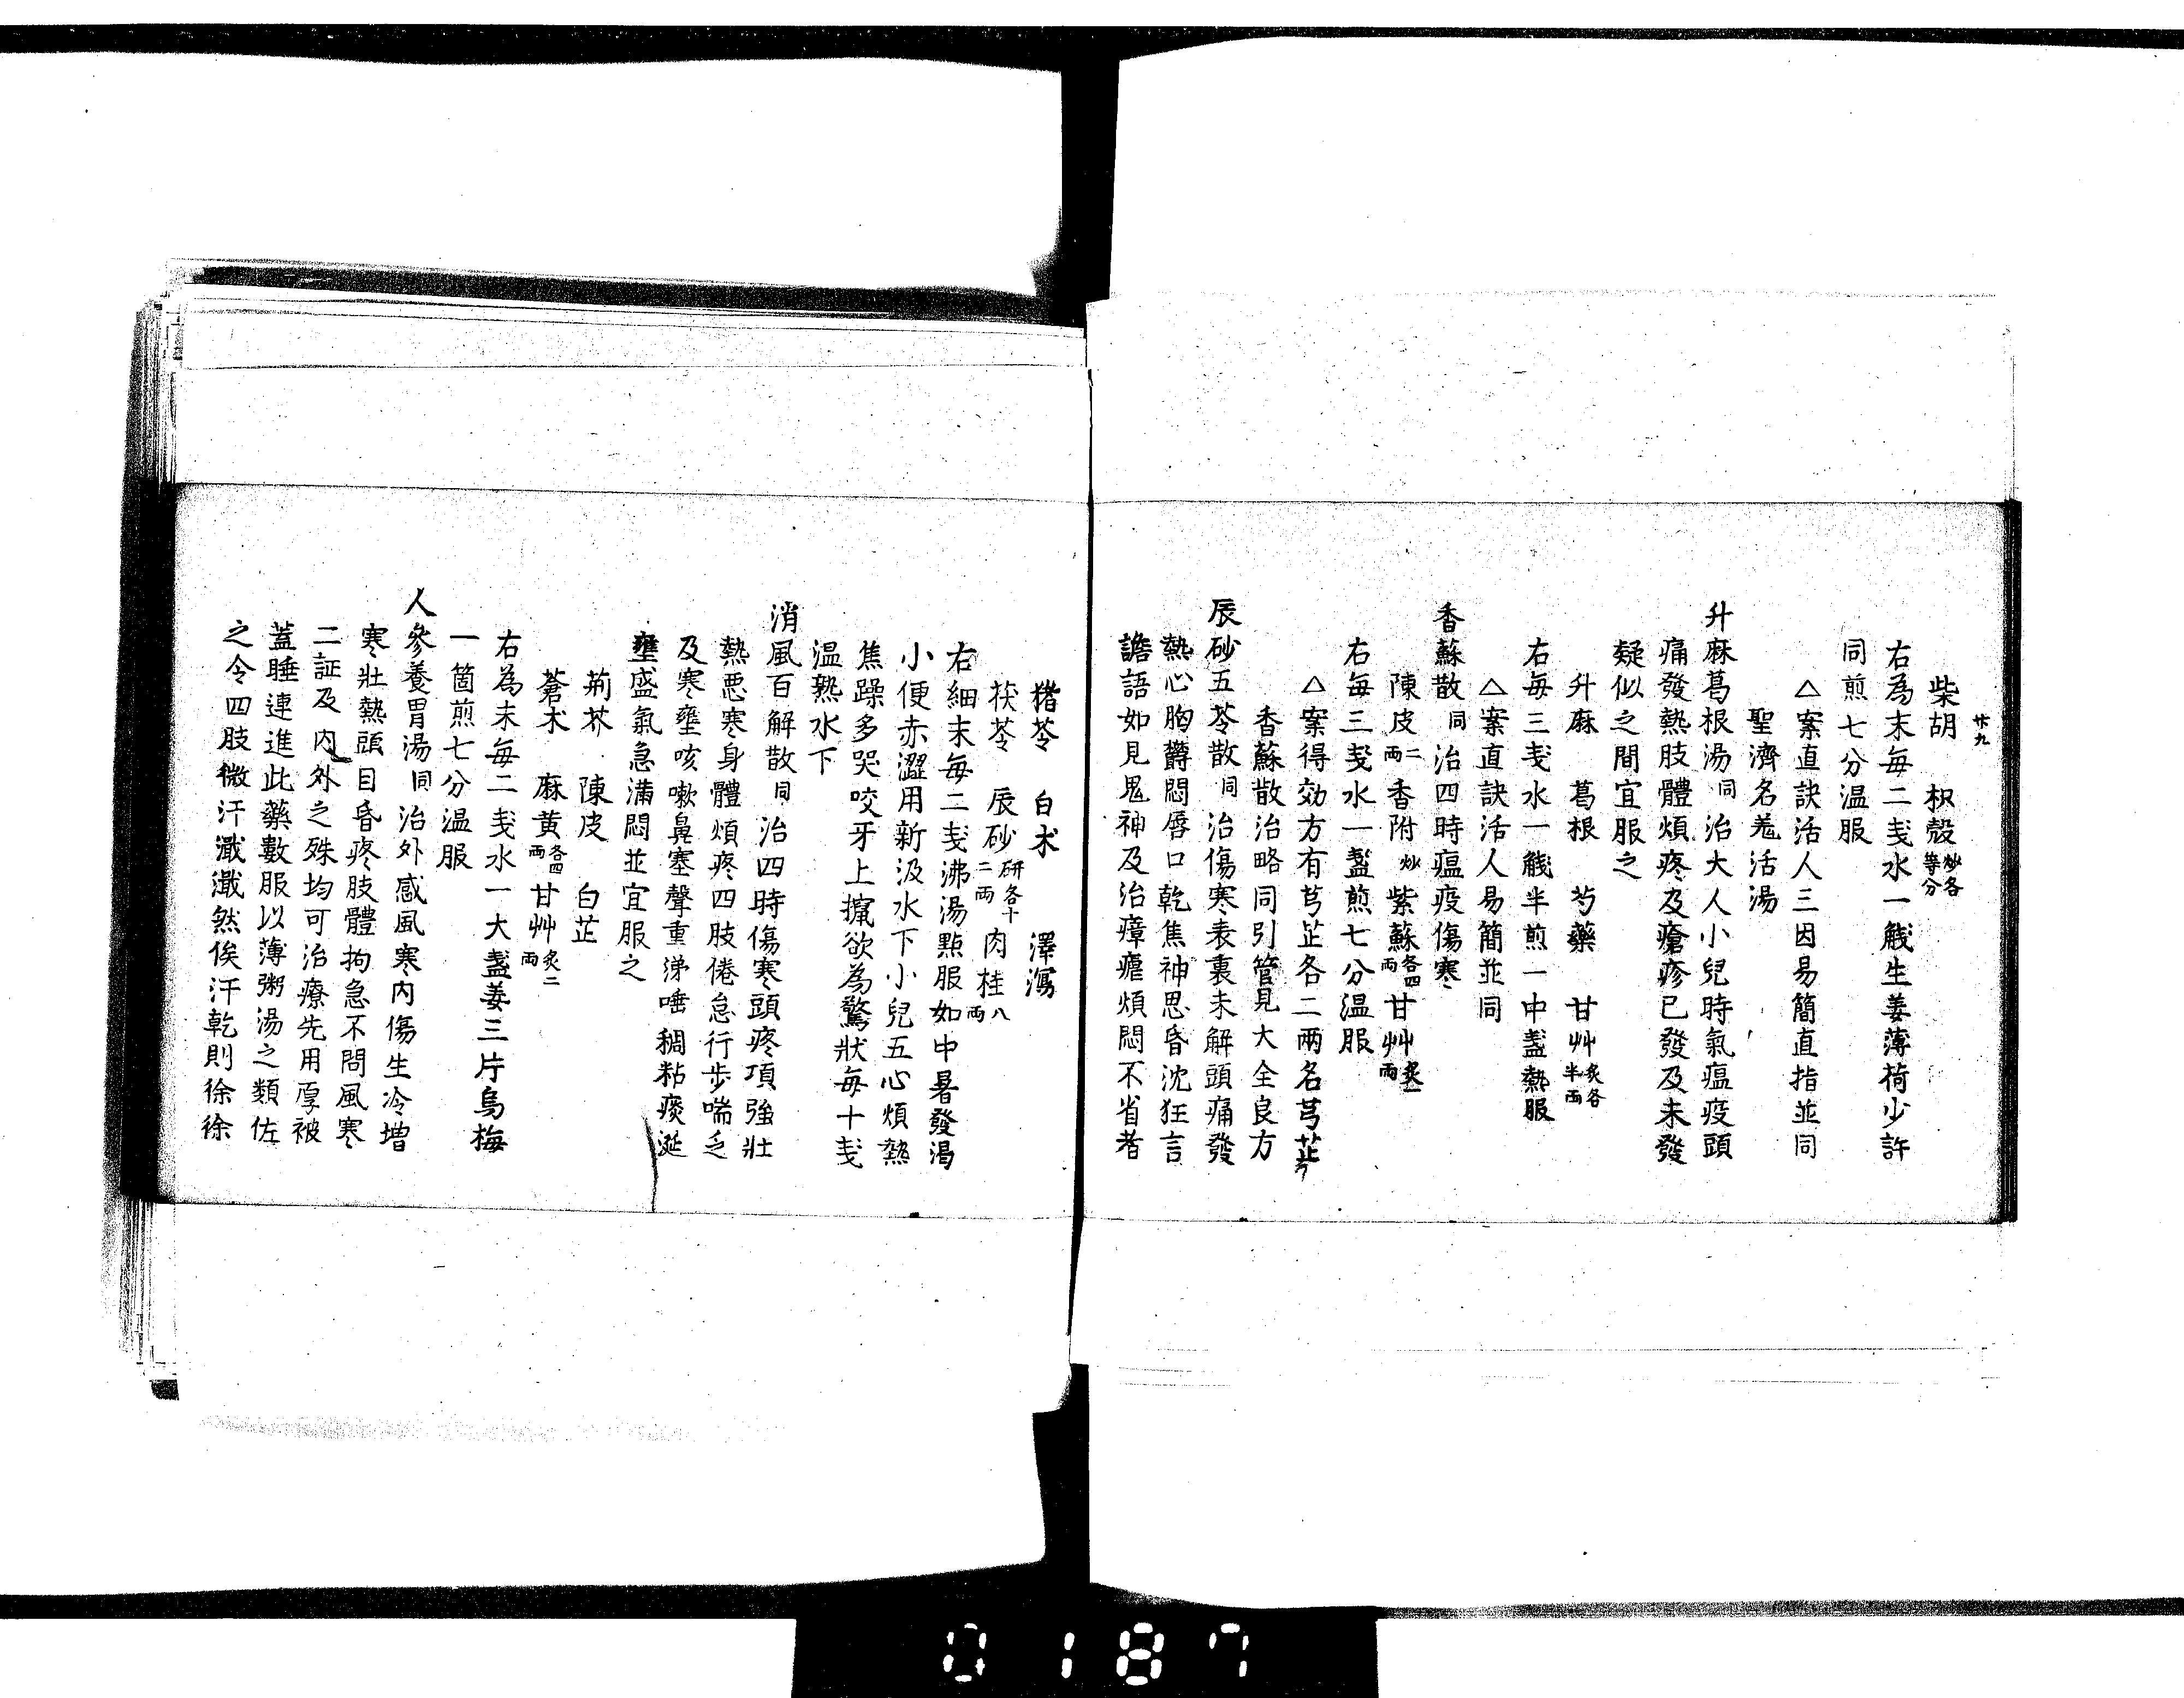 廿九
柴胡　枳殻炒各等分
右為末毎二戔水一餞生姜薄荷少許
同煎七分温服
△案直訣活人三因易簡直指並同
聖濟名羗活湯
升麻葛根湯同治大人小兒時氣瘟疫頭
痛發熱肢體煩疼及瘡疹已發及未發
疑似之間宜服之
升麻　葛根　芍藥　甘艸炙各半両
右毎三戔水一餞半煎一中盞熱服
△案直訣活人易簡並同
香蘇散同治四時瘟疫傷寒
陳皮二両香附炒紫蘇各四両甘艸炙一両
右毎三戔水一盞煎七分温服
△案得効方有芎芷各二两名芎芷
香蘇散治略同引管見大全良方
辰砂五苓散同治傷寒表裏未解頭痛發
熱心胸欝悶唇口乾焦神思昏沈狂言
譫語如見鬼神及治瘴瘧煩悶不省者
猪苓　白朮　澤瀉
茯苓　辰砂研各十二両肉桂八両
右細末毎二戔沸湯點服如中暑發渇
小便赤澀用新汲水下小兒五心煩熱
焦躁多哭咬牙上攛欲為驚狀毎十戔
温熟水下
消風百解散同治四時傷寒頭疼項強壯
熱悪寒身體煩疼四肢倦怠行歩喘乏
及寒壅咳嗽鼻塞聲重涕唾稠粘痰涎
壅盛氣急滿悶並宜服之
荊芥　陳皮　白芷
蒼朮　麻黄各四両甘艸炙二両
右為末毎二戔水一大盞姜三片烏梅
一箇煎七分温服
人參養胃湯同治外感風寒内傷生冷増
寒壯熱頭目昏疼肢體拘急不問風寒
二証及内外之殊均可治療先用厚被
蓋睡連進此藥數服以薄粥湯之類佐
之令四肢微汗濈濈然俟汗乾則徐徐
0187